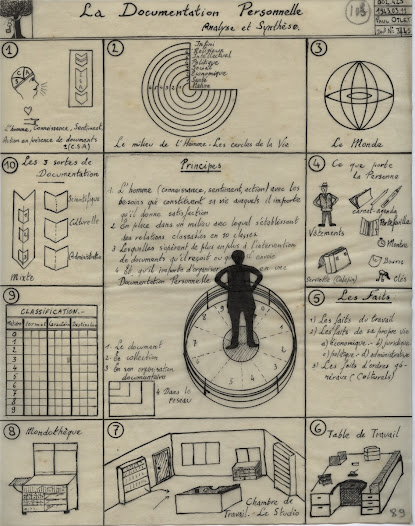 La Documentation Personnelle
Analyse et Synthèse.
103
PAUL OTLET
1
L'homme, Connaissance, Sentiment,
Action en présence de documents
2
Infini
Intellectuel
Politique
Social
Economique
Santé
Nature
Le milieu de l'Homme - Les cercles de la Vie
3
Le Monde
10
Les 3 sortes de
Documentation
Scientifique
Culturelle
Administrative
Mixte
Principes
1. L'homme (connaissance, sentiment, action) avec les
besoins qui constituent sa vie auxquels il importe
qu'il donne satisfaction
2. En place dans un milieu avec lequel s'établissent
des relations classables en 10 classes
3. Lesquelles s'insèrent de plus en plus à l'intervention
de documents qu'il reçoit ou
4. Et qu'il importe d'organiser en une
Documentation Personnelle
1. Le document
2. La collection
3. En son organisation
documentaire
4 Dans le
réseau
4
Ce que porte
la Personne
Vêtements
carnet-agenda
Portefeuille
Montre
Clés
5
Les Faits
1) Les faits du travail
2) Les faits de sa propre vie
a) économique. - b) juridique
c) politique. - d) administrative
3) Les faits d'ordres gé-
néraux (Culturels)
9
CLASSIFICATION.-
Matière Format Caractère Destination
0
1
2
3
4
5
6
7
8
9
8
Mondothèque
7
Chambre de
Travail. - Le Studio
6
Table de Travail
89